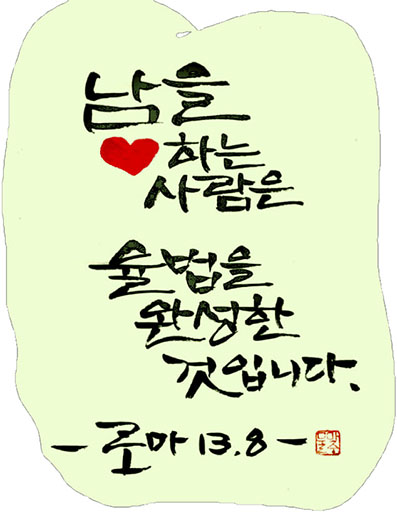 남을
❤하는
사람은
율법을
완성한
것입니다.
- 로마 13.8 -